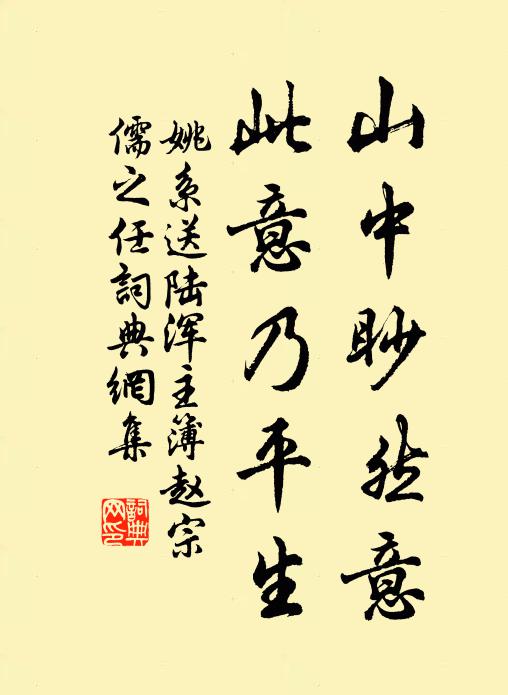 山中眇然意
此意乃平生
姚系送陆浑主簿赵宗
儒之任詞典網集
詞典
网印